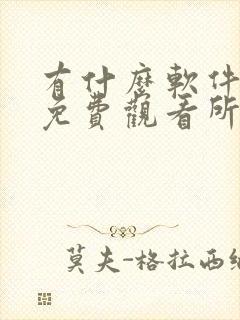 有什麼軟件
免費觀看所
莫夫-格拉西